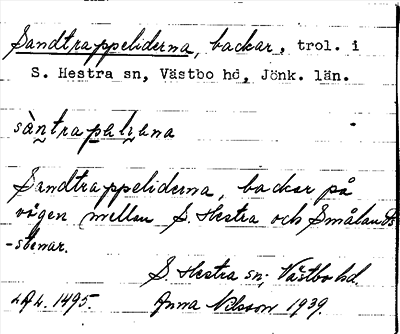 Sandtrappeliderna, backar, trol. i
S. Hestra sn, Västbo hd, Jönk. län.
Sandtrappeliderna, backar på
vägen mellan S. Hestra och Smålands
-stenar.
S. Hestra sn; Västbo hd.
1495 Anna Nilsson 1939.